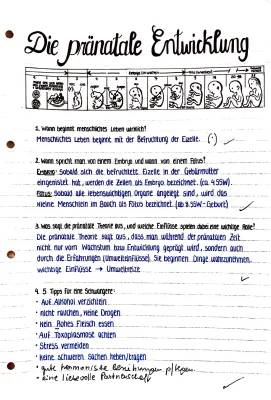 Die pränatale Entwicklung
1. Wann beginnt menschliches Leben wirklich?
Menschliches Leben beginnt mit der Befruchtung der Eizelle. (·)
2. Wann spricht man von einem Embryo und wann von einem Fötus?
Embryo: Sobald sich die befruchtete Eizelle in der Gebärmutter
eingenistet hat, werden die Zellen als Embryo bezeichnet. (ca. 4.SSW)
Fötus: Sobald alle lebenswichtigen Organe angelegt sind, wird das
kleine Menschlein im Bauch als Fötus bezeichnet. (ab 9.SSW-Geburt)
3. Was sagt die pränatale Theorie aus, und welche Einflüsse spielen dabei eine wichtige Rolle?
Die pränatale Theorie sagt aus, dass während der pränatalen Zeit
nicht nur vom Wachstum bzw Entwicklung geprägt wird, sondern auch
durch die Erfahrungen (Umwelteinflüsse). Sie beginnen Dinge wahrzunehmen.
wichtige Einflüsse → Umweltreize
4. 5 Tipps für eine Schwangere:
- Auf Alkohol verzichten
- nicht rauchen, keine Drogen
- Kein Rohes Fleisch essen
- Auf Toxoplasmose achten
- Stress vermeiden
- Keine schweren Sachen heben/tragen
- gute harmonische Beziehungen pflegen
- eine liebevolle Partnerschaft